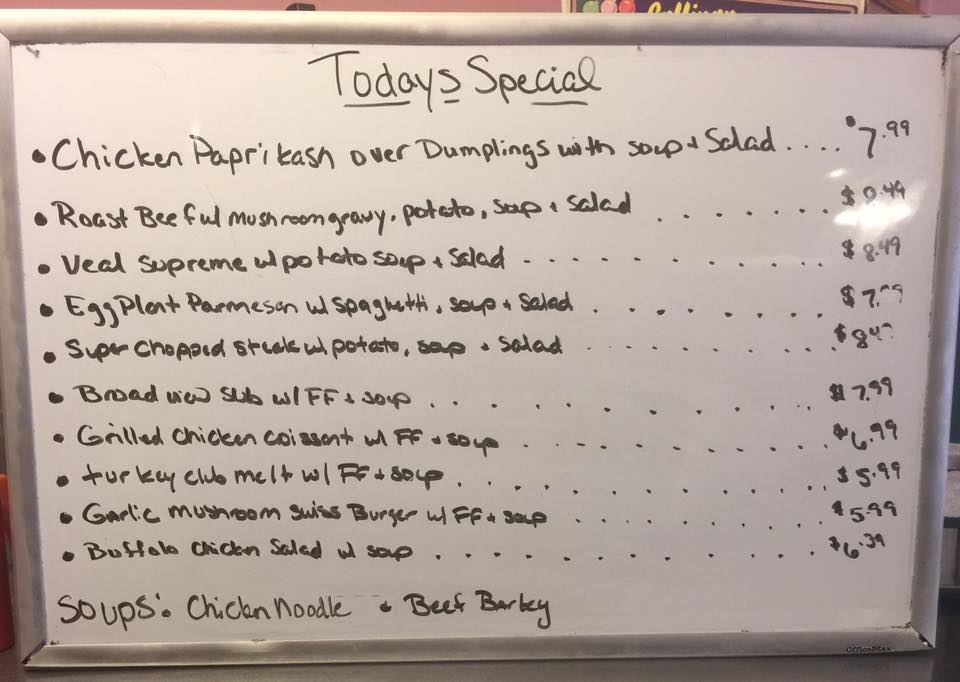 Todays Special
• Chicken Paprikash over Dumplings with soup + Salad .... $7.99
• Roast Beef w/ mushroom gravy, potato, soup + salad ....... $8.49
• Veal Supreme w/ potato soup + salad ........... $8.49
• EggPlant Parmesan w/ spaghetti, soup + salad ........ $7.99
• Super Chopped steak w/ potato, soup + salad ......... $8.49
• Broadview sub w/ FF + soup ............ $7.99
• Grilled chicken coissant w/ FF + soup .......... $6.99
• turkey club melt w/ FF + soup ............ $5.99
• Garlic mushroom swiss Burger w/ FF + soup ......... $5.99
• Buffalo Chicken Salad w/ soup ........... $6.39
SOUPS: Chicken Noodle • Beef Barley
OfficeMax